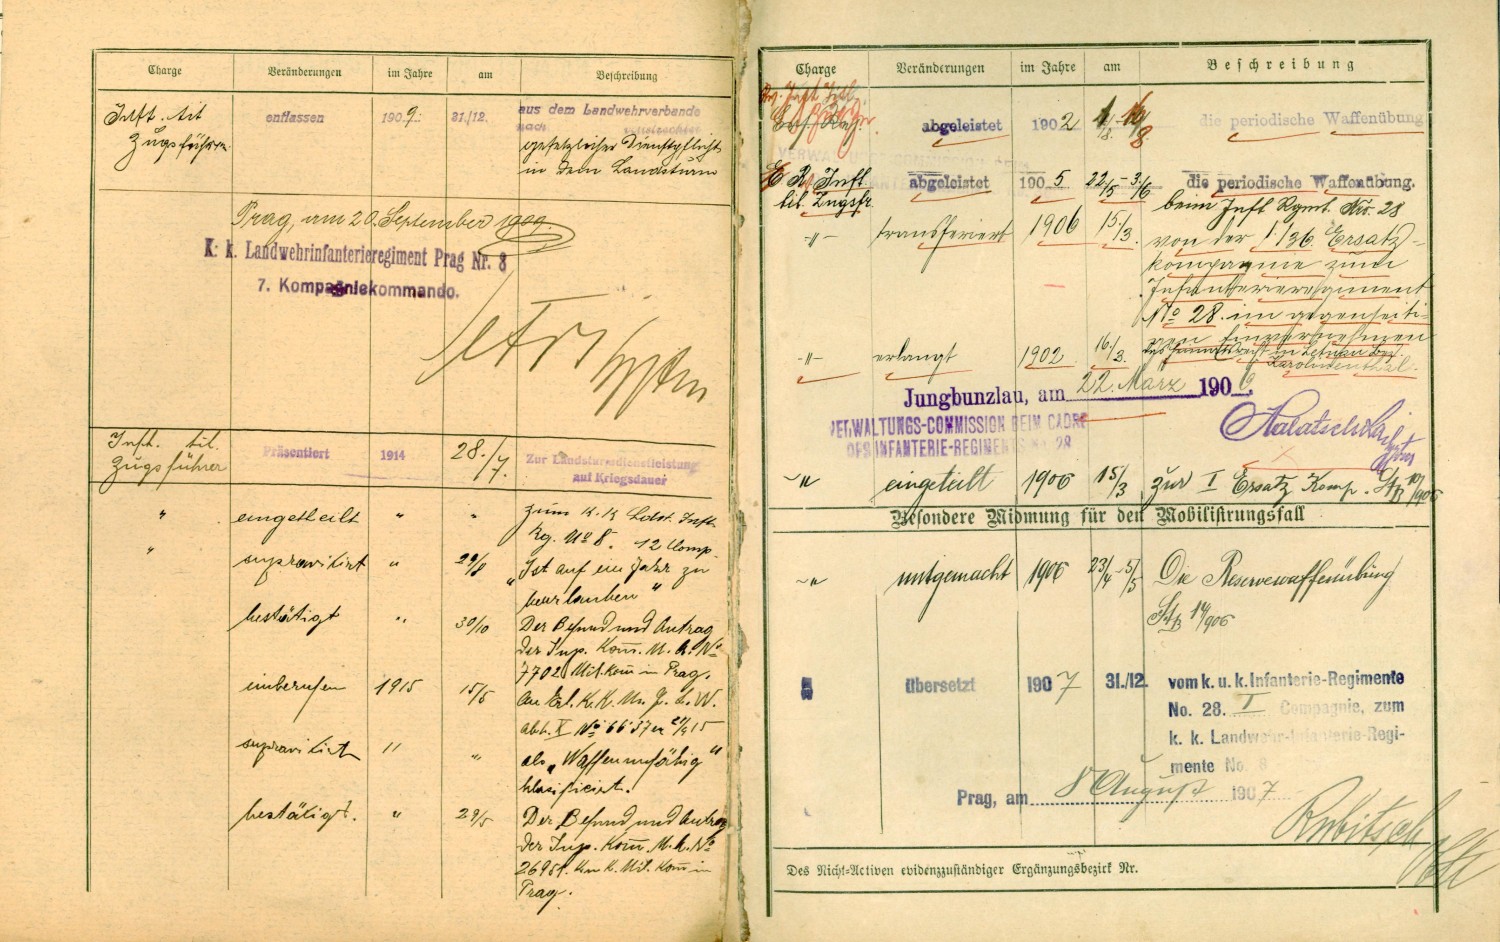 Charge Veränderungen im Jahre am Beschreibung
Inft. tit. entlassen 1909. 31./12. aus dem Landwehrverbande
Zugsführer nach vollstreckter
gesetzlicher Dienstpflicht
in dem Landsturm
Prag, am 20. September 1909.
K. k. Landwehrinfanterieregiment Prag Nr. 8
7. Kompagniekommando.
Inft. tit. Präsentiert 1914 28./7. Zur Landsturmdienstleistung
Zugsführer auf Kriegsdauer
" eingetheilt " " zum k. k. Ldst. Inft.
Rg. No 8. 12 Comp.
" supravilirt " 29/8 "Ist auf ein Jahr zu
beurlauben"
bestätigt " 30/10 Der Befund und Antrag
der Sup. Kom. M. A. No
7702 Mil. Kom in Prag.
einberufen 1915 15/5 K. K. M. f. L. V.
abt. X No 6637
supravilirt " " als "Waffenunfähig"
klasificirt.
bestätigt. " 29/5 Der Befund und Antrag
der Sup. Kom. M. A. No
Mil. Kom in
Prag.
Charge Veränderungen im Jahre am Beschreibung
abgeleistet 1902 die periodische Waffenübung
E Rv Inft abgeleistet 1905 22/5-3./6 die periodische Waffenübung.
tit. Zugsfr. beim Inft Rgmt. No. 28
-"- transferiert 1906 15./3. von der 1./36. Ersatz-
kompagnie zum
Infanterieregiment
No 28. im gegenseiti-
gen Einvernehmen
-"- erlangt 1902 16./3.
Karolinenthal.
Jungbunzlau, am 22. März 1906.
VERWALTUNGS-COMMISSION BEIM CADRE
DES INFANTERIE-REGIMENTS No. 28
-"- eingeteilt 1906 15/3 zur I Ersatz Komp.
Besondere Widmung für den Mobilisierungsfall
-"- mitgemacht 1906 23/4-5/5 Die Reservewaffenübung
übersetzt 1907 31./12. vom k. u. k. Infanterie-Regimente
No. 28. I Compagnie, zum
k. k. Landwehr-Infanterie-Regi-
mente No. 8
Prag, am 8 August 1907
Des Nicht-Activen evidenzzuständiger Ergänzungsbezirk Nr.